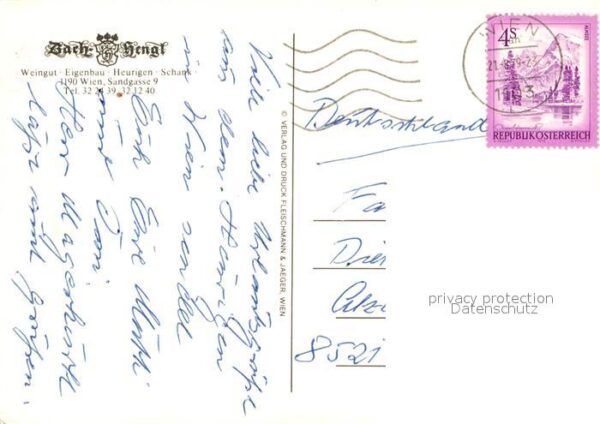 Bach-Hengl
Weingut · Eigenbau · Heurigen · Schank
1190 Wien, Sandgasse 9
Tel. 32 24 39, 32 12 40
Viele liebe Urlaubsgrüße
aus dem Heurigen
in Wien sendet
Euch Eure Mutti
und Omi
Herr
läßt auch grüßen.
© VERLAG UND DRUCK FLEISCHMANN & JAEGER, WIEN
WIEN
21.-8.79-23
1103
4S
REPUBLIK ÖSTERREICH
Deutschland
Fa
Die
Alz
8521
privacy protection
Datenschutz